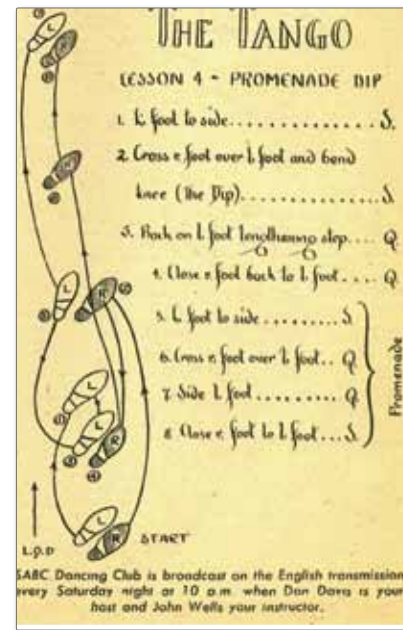 THE TANGO
LESSON 4 - PROMENADE DIP
1. L foot to side............. S.
2. Cross R foot over L foot and bend
knee (The Dip)............... S
3. Back on L foot lengthening step.... Q
4. Close R foot back to L foot.... Q
5. L foot to side......... S
6. Cross R foot over L foot.. Q
7. Side L foot......... Q
8. Close R foot to L foot... S
Promenade
L
R
L
R
L
L
R
L
R
START
L.O.D
SABC Dancing Club is broadcast on the English transmission
every Saturday night at 10 p.m. when Dan Davis is your
host and John Wells your instructor.